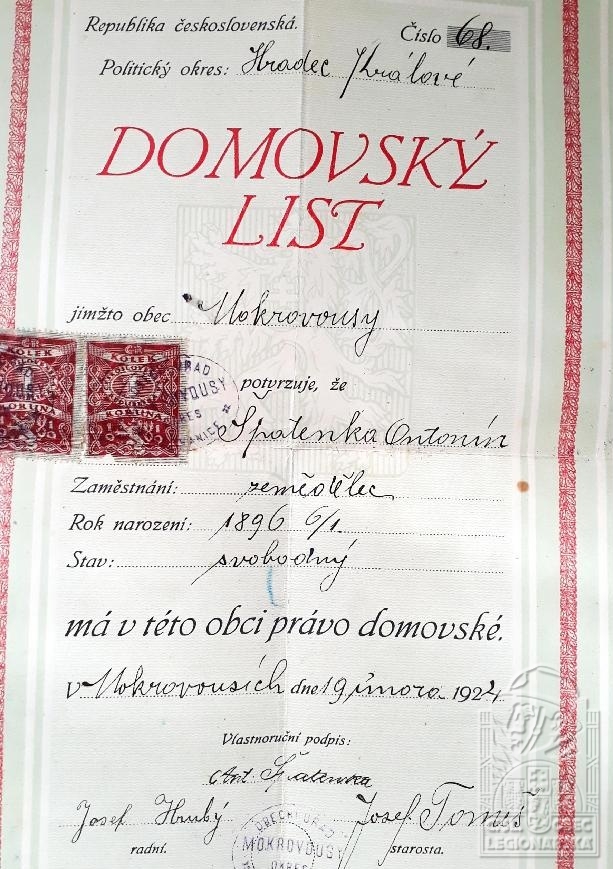 Republika československá.
Číslo 68.
Politický okres: Hradec Králové
DOMOVSKÝ
LIST
jimžto obec Mokrovousy
KOLEK
KOLEK
KORUNA
KORUNA
MOKROVOUSY
potvrzuje, že
Špatenka Antonín
Zaměstnání: zemědělec
Rok narození: 1896 6/1.
Stav: svobodný
má v této obci právo domovské.
v Mokrovousích dne 19 února 1924
Vlastnoruční podpis:
Ant. Špatenka
Josef Hrubý
Josef Tomuš
radní.
starosta.
OBECNÍ ÚŘAD
MOKROVOUSY
OKRES
OBEC
LEGIONÁŘSKÁ